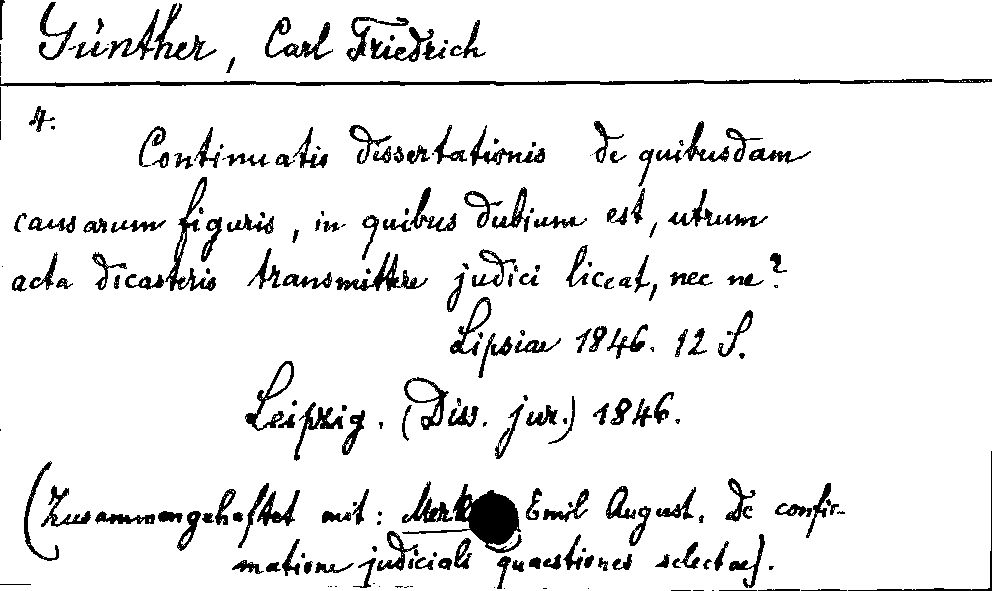 Günther, Carl Friedrich
4.
Continuatio dissertationis de quibusdam
causarum figuris, in quibus dubium est, utrum
acta dicasteris transmittere judici liceat, nec ne?
Lipsiae 1846. 12 S.
Leipzig. (Diss. jur.) 1846.
(Zusammengeheftet mit: Emil August. De confir-
matione judiciali quaestiones selectae).